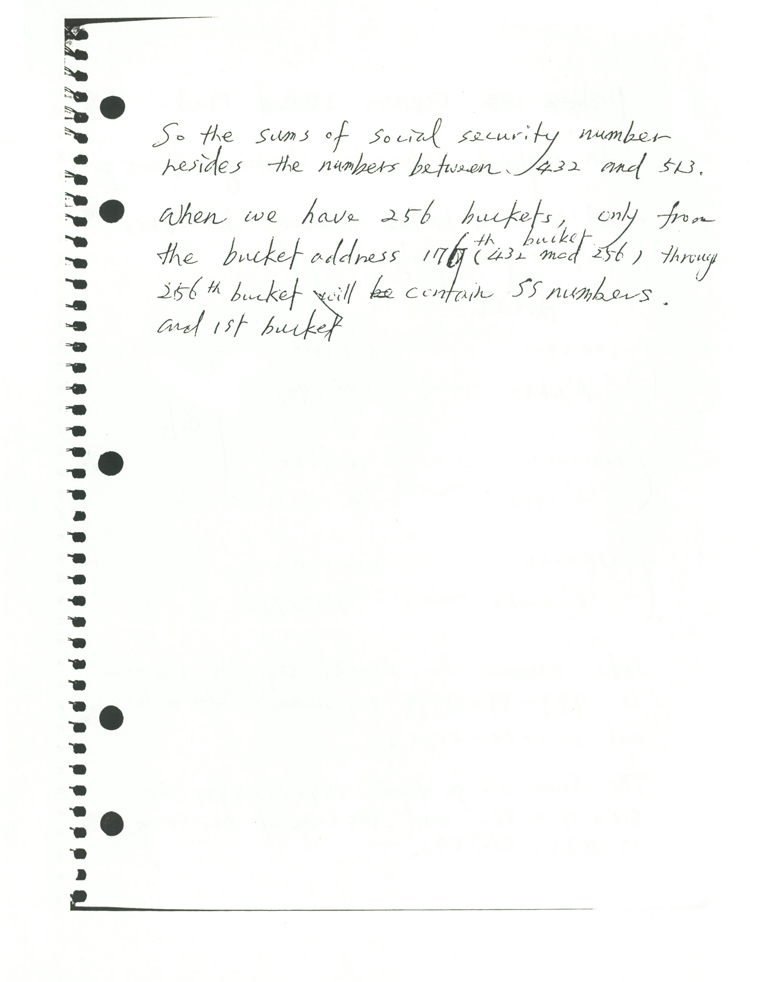 So the sums of social security number
resides the numbers between 432 and 513.
When we have 256 buckets, only from
the bucket address 176th bucket (432 mod 256) through
256th bucket will be contain SS numbers.
and 1st bucket